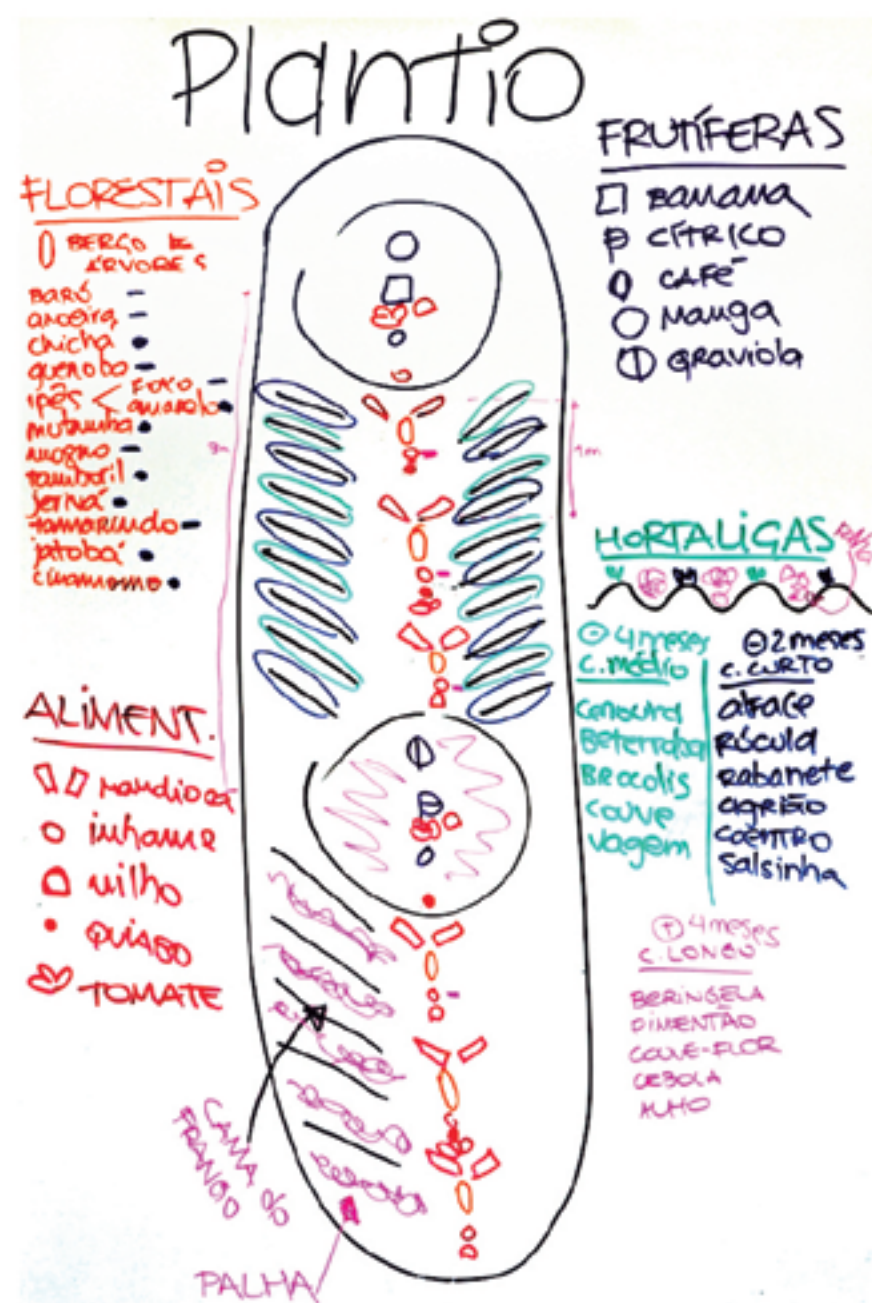 Plantio
FLORESTAIS
BERÇO DE
ÁRVORES
BARÚ
aroeira
chicha
gueroba
ipês < roxo
amarelo
mutamba
mogno
tamboril
Jerivá
tamarindo
jatobá
cinamomo
3m
ALIMENT.
mandioca
inhame
milho
QUIABO
TOMATE
CAMA %
FRANGO
PALHA
FRUTÍFERAS
BANANA
CÍTRICO
CAFÉ
Manga
graviola
1m
HORTALIÇAS
⊖ 4 meses
C. médio
cenoura
Beterraba
Brocolis
couve
vagem
⊖ 2 meses
C. CURTO
alface
Rúcula
Rabanete
agrião
COENTRO
Salsinha
⊕ 4 meses
C. LONGO
BERINGELA
PIMENTÃO
COUVE-FLOR
CEBOLA
ALHO